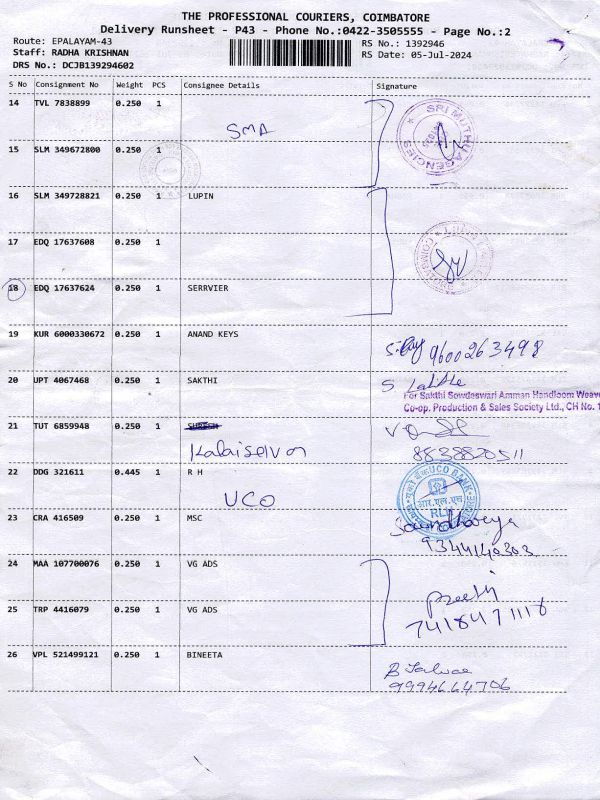 THE PROFESSIONAL COURIERS, COIMBATORE
Delivery Runsheet - P43 - Phone No.:0422-3505555 - Page No.:2
Route: EPALAYAM-43
RS No.: 1392946
Staff: RADHA KRISHNAN
RS Date: 05-Jul-2024
DRS No.: DCJB139294602
S No Consignment No Weight PCS Consignee Details Signature
14 TVL 7838899 0.250 1
SMA
SRI MUTHU AGENCIES
15 SLM 349672800 0.250 1
16 SLM 349728821 0.250 1 LUPIN
17 EDQ 17637608 0.250 1
COIMBATORE
18 EDQ 17637624 0.250 1 SERRVIER
19 KUR 6000330672 0.250 1 ANAND KEYS
9600263498
20 UPT 4067468 0.250 1 SAKTHI
For Sakthi Sowdeswari Amman Handloom Weav
Co-op. Production & Sales Society Ltd., CH No. 1
21 TUT 6859948 0.250 1 SURESH
Kalaiselvan
8838820511
22 DDG 321611 0.445 1 R H
UCO
UCO BANK
आर.एल.एच
RLH
23 CRA 416509 0.250 1 MSC
Soundhareya
9344140303
24 MAA 107700076 0.250 1 VG ADS
Preethi
7418471118
25 TRP 4416079 0.250 1 VG ADS
26 VPL 521499121 0.250 1 BINEETA
9994664706